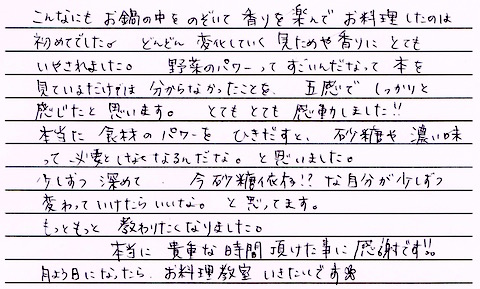 こんなにも お鍋の中を のぞいて 香りを 楽んで お料理したのは
初めてでした。 どんどん 変化していく 見ためや香りに とても
いやされました。 野菜のパワーって すごいんだなって 本を
見ているだけでは 分からなかったことを、 五感で しっかりと
感じたと 思います。 とても とても 感動しました!!
本当に 食材の パワーを ひきだすと、 砂糖や 濃い味
って 必要としなくなるんだな。と 思いました。
少しずつ 深めて 今 砂糖依存!? な自分が 少しずつ
変わっていけたら いいな。 と 思ってます。
もっともっと 教わりたくなりました。
本当に 貴重な 時間 頂けた事に 感謝です!!
月よう日になったら、お料理教室 いきたいです